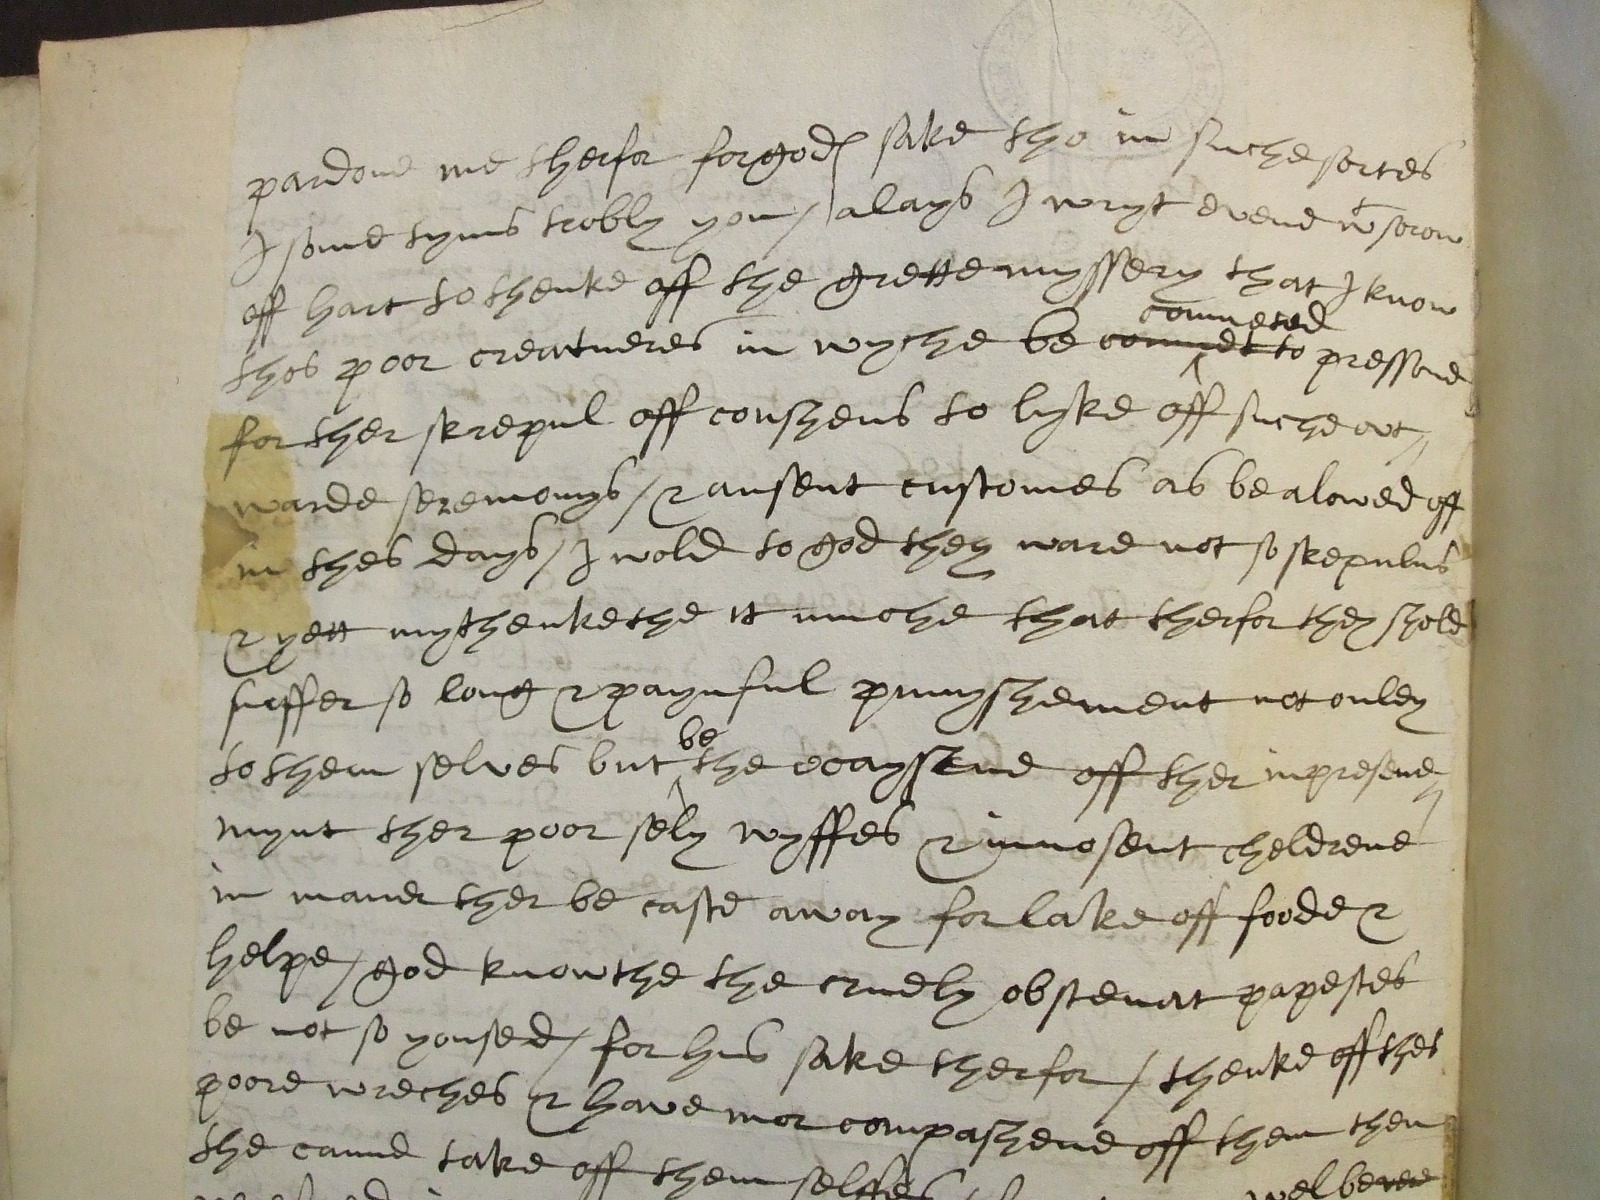 pardone me therfor for gods sake tho in suche sortes
I some tyms trobly you / alays I wryt evene wt sorow
off hart to thenke off the grette myssery that I know
thos poor creatueres in wyche be comedt commeted to pressone
for ther skrepul off conshens to lyke off suche out,,
warde seremonys / & ansent customes as be alowed off
in thes days / I wold to god they ware not so skepulus
& yett mythenkethe it muche that therfor they shold
suffer so long & paynful punnyshement not onley
to them selves but be the ocaysene off ther inpresene,,
mynt ther poor sely wyffes & innosent cheldrene
in maner ther be caste away for lake off foode &
helpe / god knowthe the cruely obstenat papestes
be not so yoused / for his sake therfor / thenke off thes
poore wreches & have mor compashene off them then
the canne take off them selffes